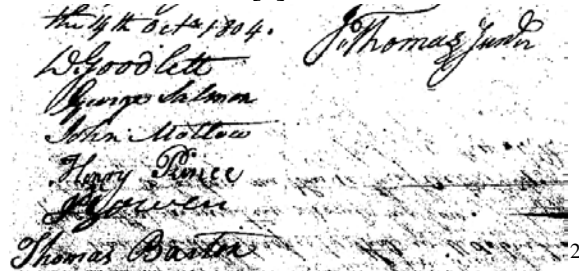 the 4th Octr. 1804.
J. Thomas Junr
D. Goodlett
George Salmon
John Motlow
Henry Prince
Gowen
Thomas Barton
2